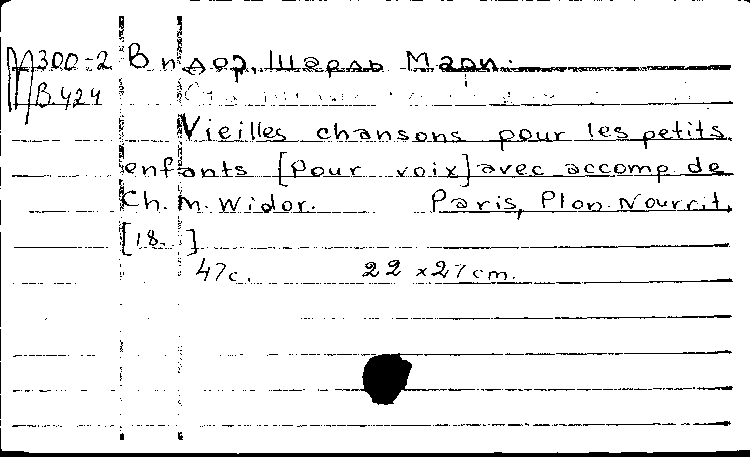 П300-2 Видор, Шарль Мари.
В.424
Vieilles chansons pour les petits
enfants [pour voix] avec accomp de
Ch. M. Widor. Paris, Plon-Nourrit,
[18. ]
47с. 22 x 27 cm.